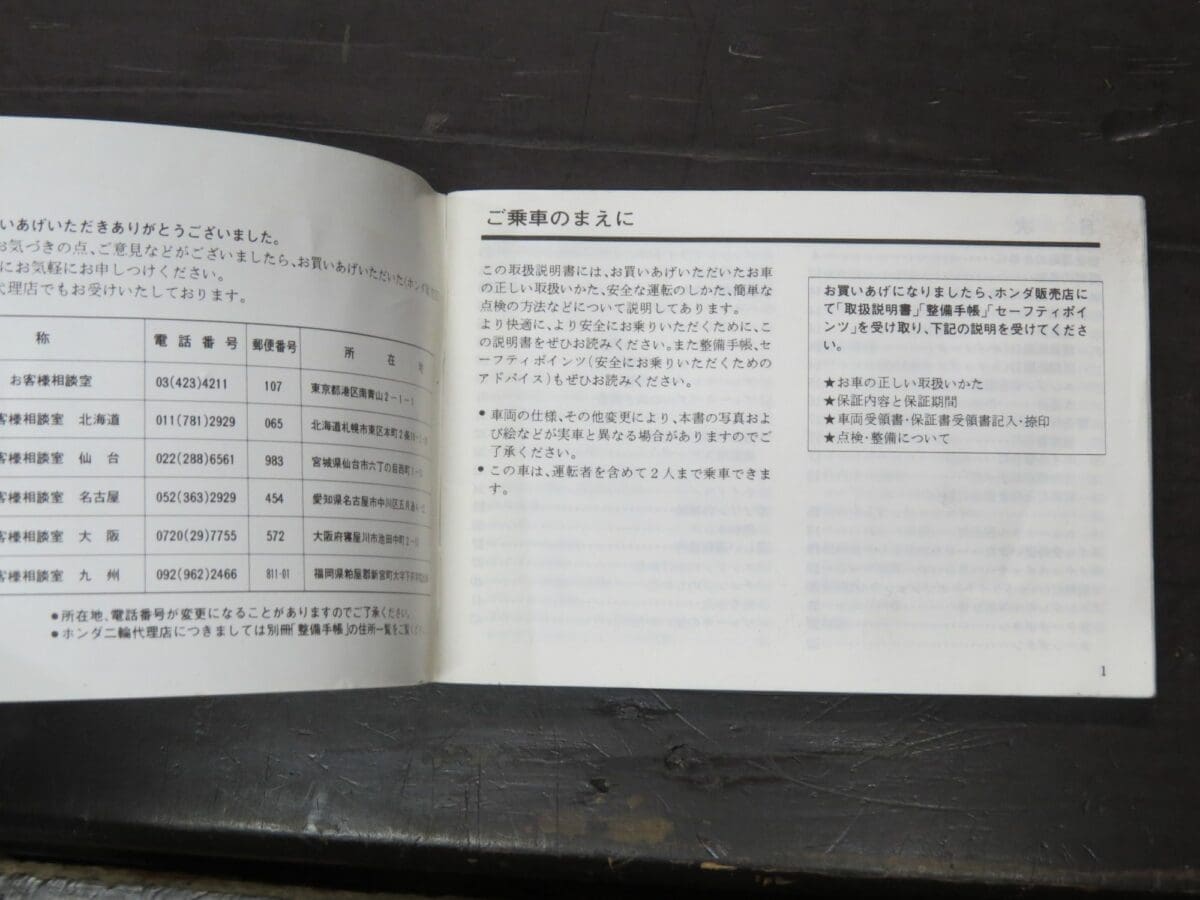 いあげいただきありがとうございました。
お気づきの点、ご意見などがございましたら、お買いあげいただいた(ホンダ販売店
にお気軽にお申しつけください。
代理店でもお受けいたしております。
称 電話番号 郵便番号 所在地
お客様相談室 03(423)4211 107 東京都港区南青山2-1-1
客様相談室 北海道 011(781)2929 065 北海道札幌市東区本町2条
客様相談室 仙台 022(288)6561 983 宮城県仙台市六丁の目西町1-
客様相談室 名古屋 052(363)2929 454 愛知県名古屋市中川区五月通
客様相談室 大阪 0720(29)7755 572 大阪府寝屋川市池田中町2-
客様相談室 九州 092(962)2466 811-01 福岡県粕屋郡新宮町大字下府
●所在地、電話番号が変更になることがありますのでご了承ください。
●ホンダ二輪代理店につきましては別冊「整備手帳」の住所一覧をご覧くださ
ご乗車のまえに
この取扱説明書には、お買いあげいただいたお車
の正しい取扱いかた、安全な運転のしかた、簡単な
点検の方法などについて説明してあります。
より快適に、より安全にお乗りいただくために、こ
の説明書をぜひお読みください。また整備手帳、セ
ーフティポインツ(安全にお乗りいただくための
アドバイス)もぜひお読みください。
●車両の仕様、その他変更により、本書の写真およ
び絵などが実車と異なる場合がありますのでご
了承ください。
●この車は、運転者を含めて2人まで乗車できま
す。
お買いあげになりましたら、ホンダ販売店に
て「取扱説明書」「整備手帳」「セーフティポイ
ンツ」を受け取り、下記の説明を受けてくださ
い。
★お車の正しい取扱いかた
★保証内容と保証期間
★車両受領書・保証書受領書記入・捺印
★点検・整備について
1